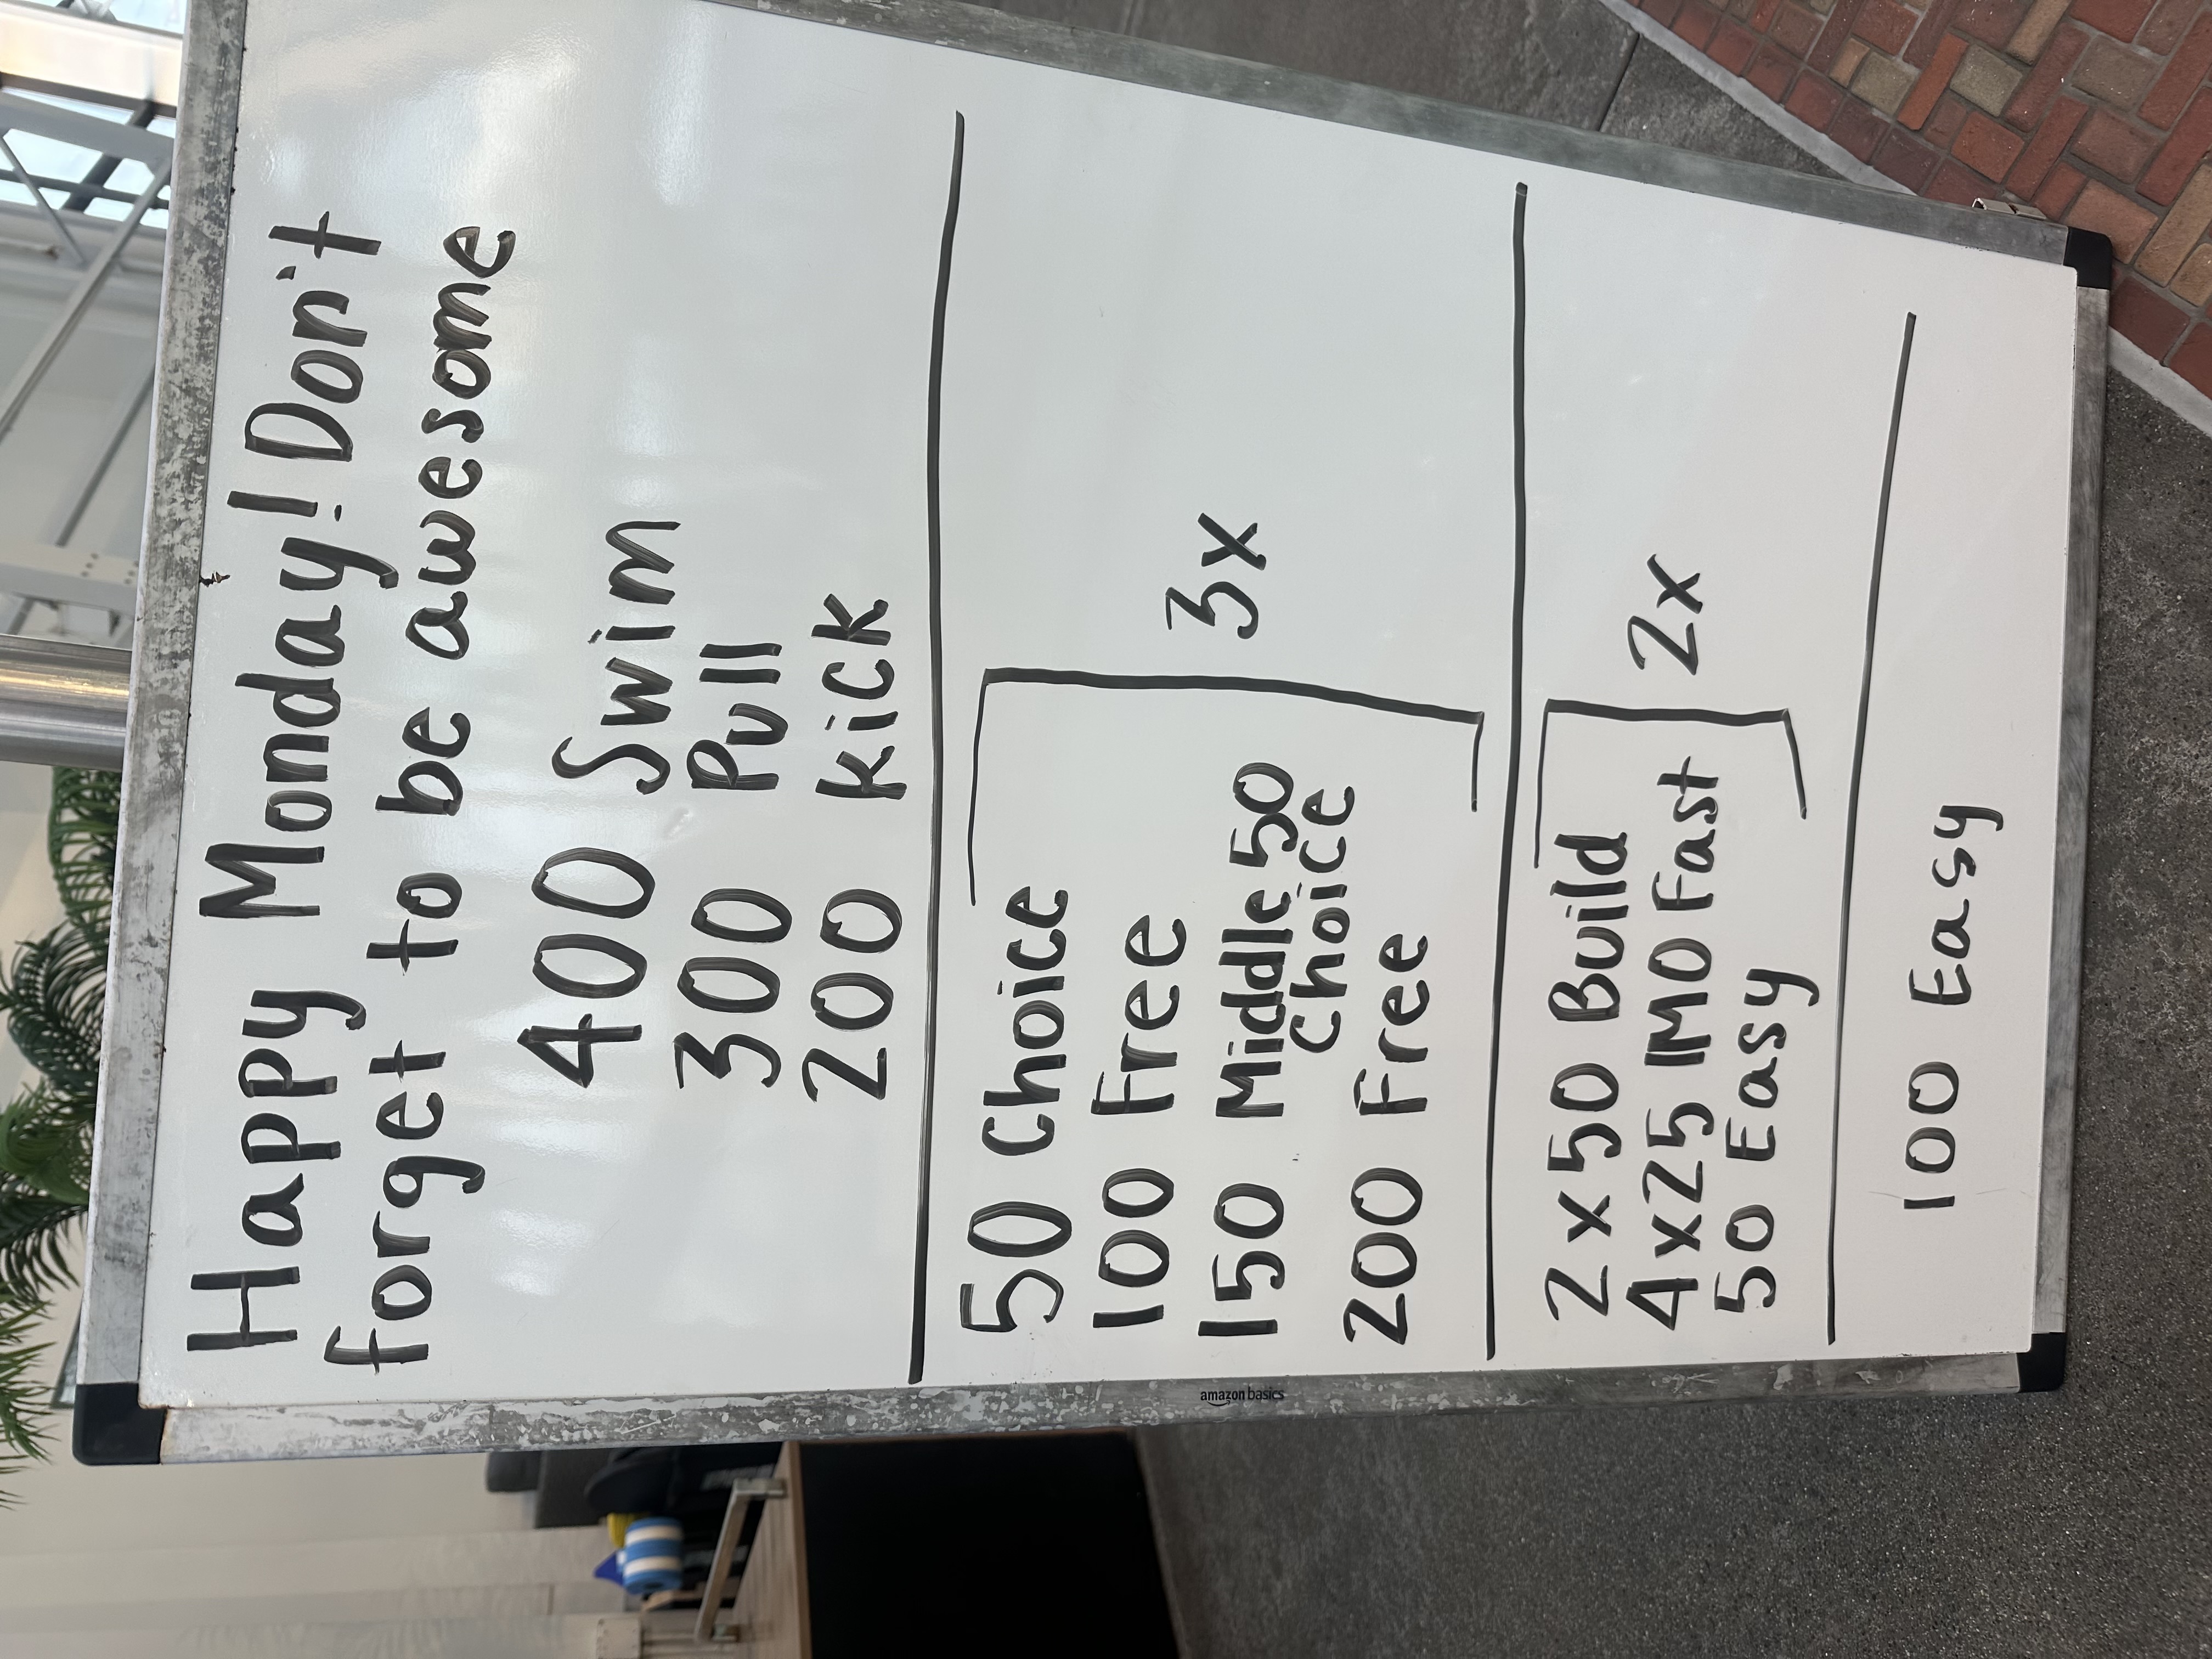 Happy Monday! Don't
forget to be awesome
400 Swim
300 Pull
200 Kick
50 Choice
100 Free
150 Middle 50
Choice
200 Free
3x
2x50 Build
4x25 IMO Fast
50 Easy
2x
100 Easy
amazon basics